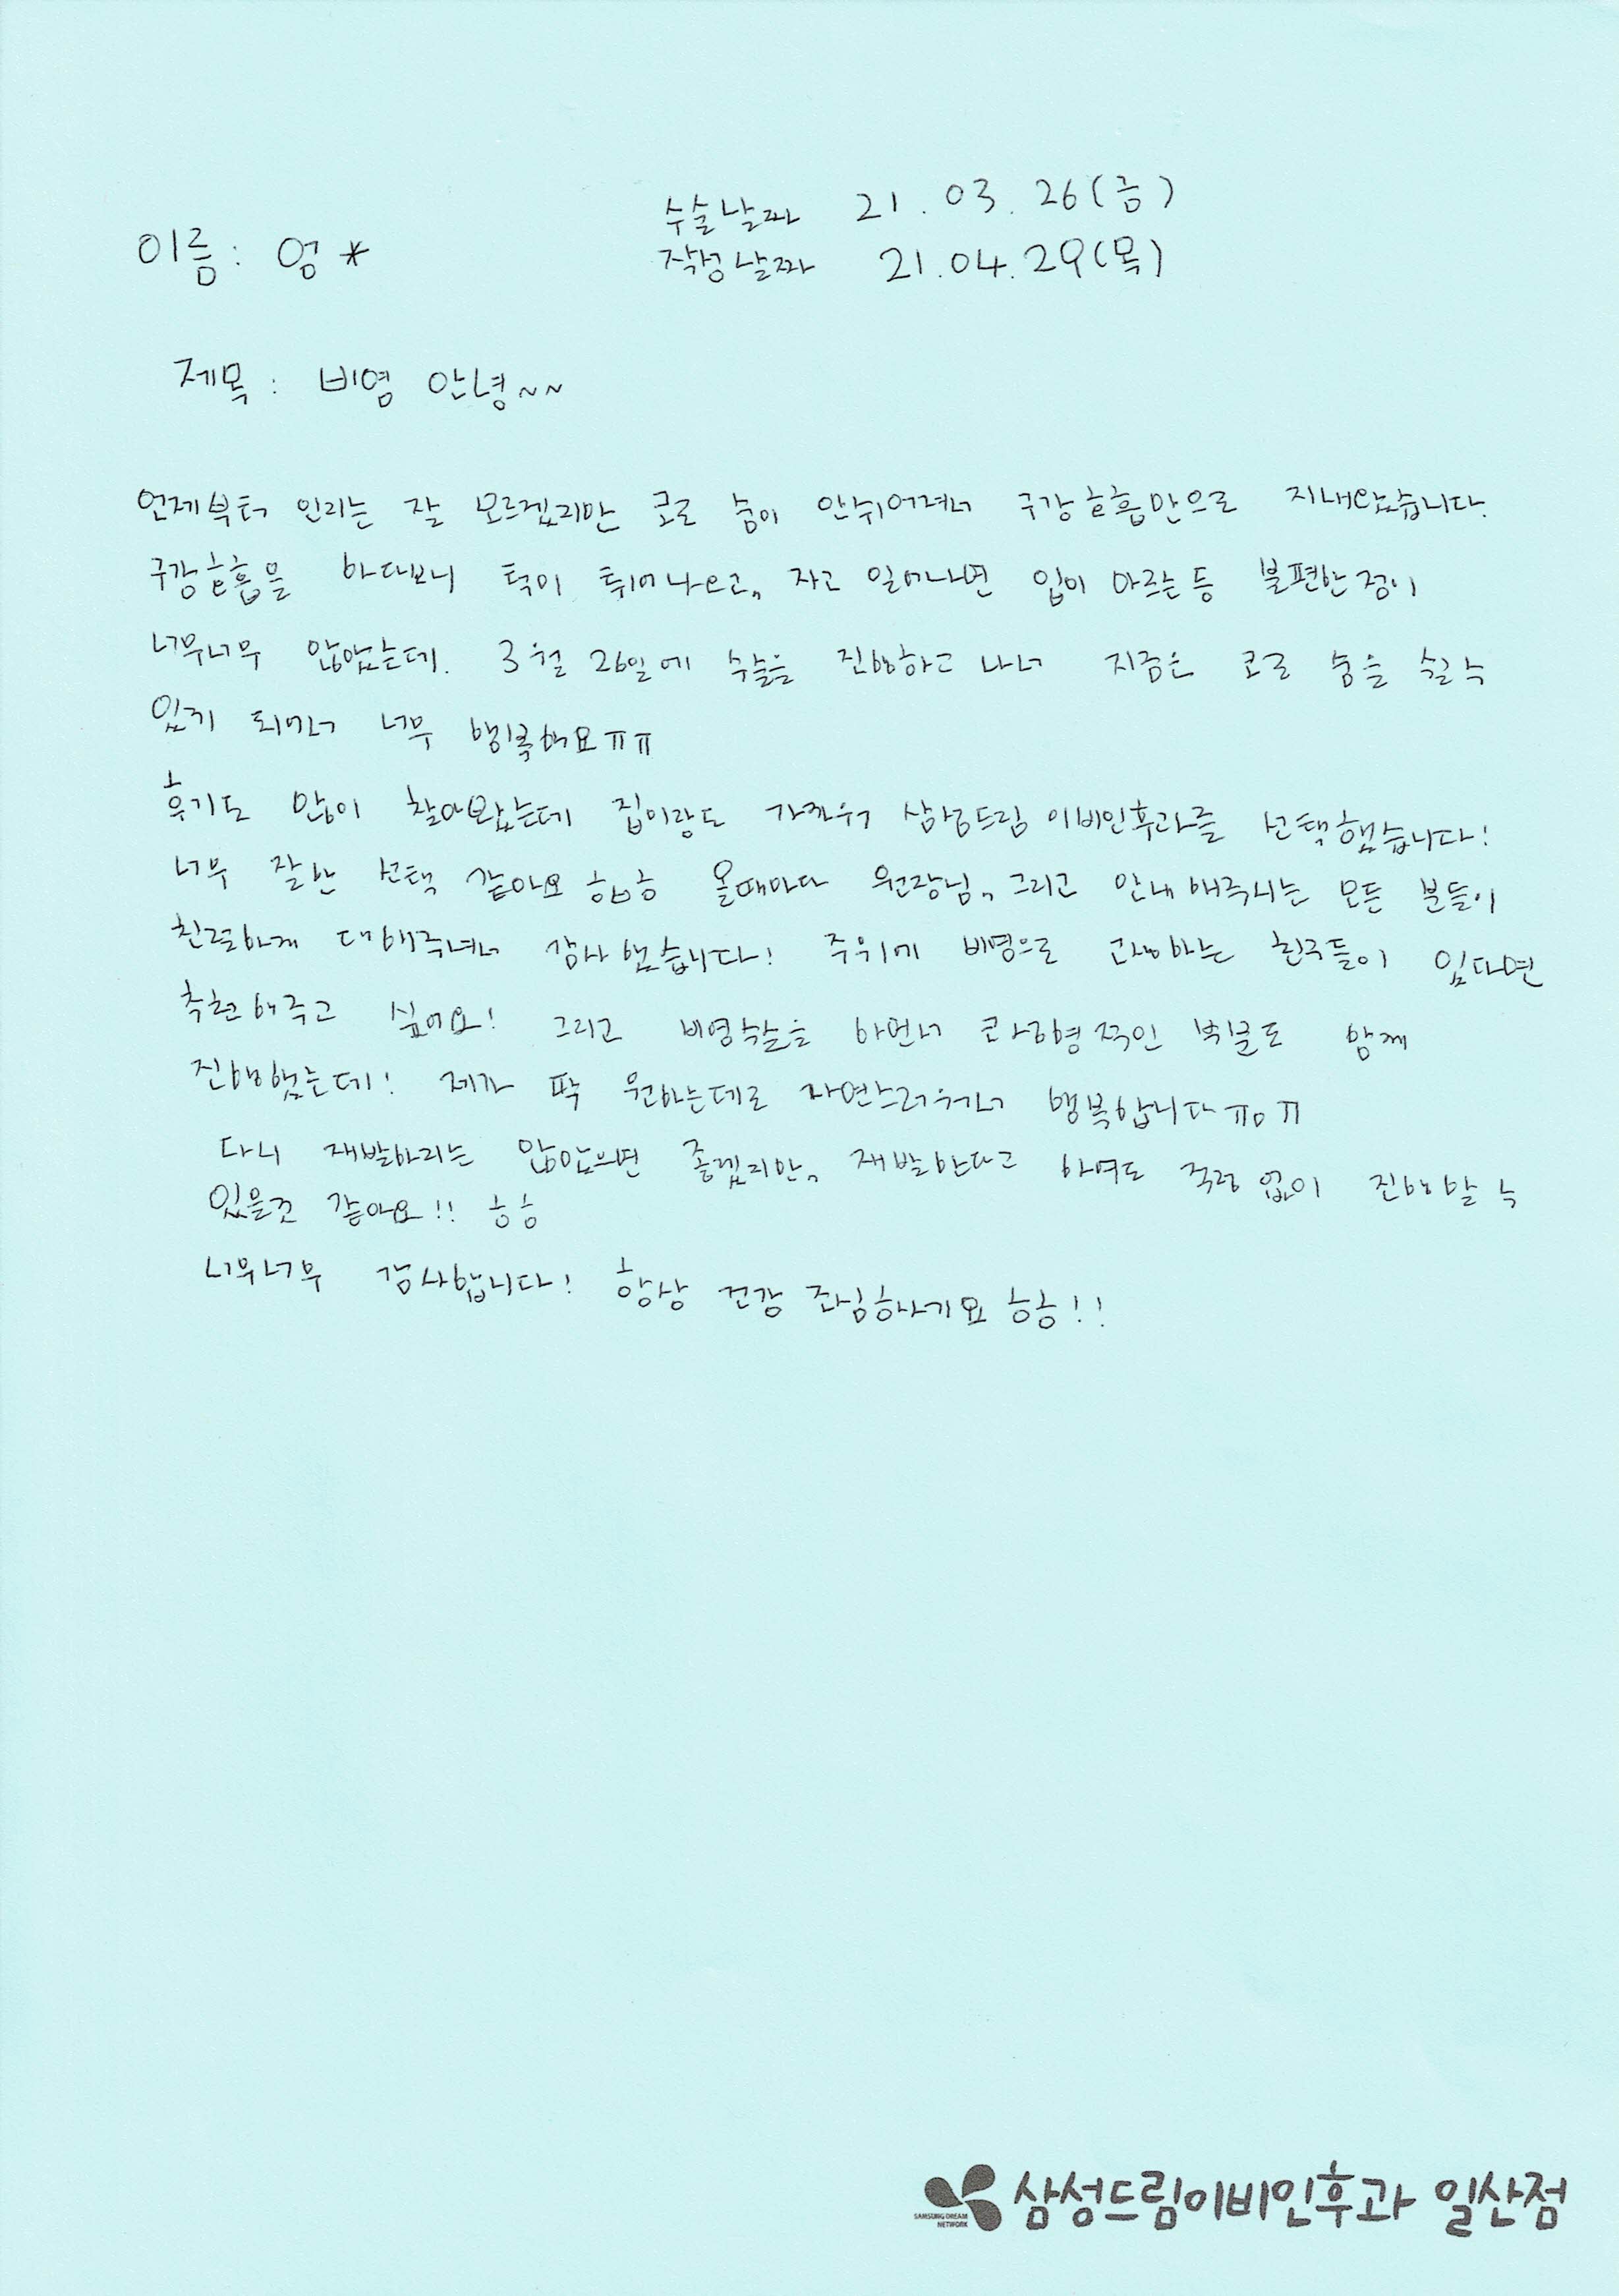 수술날짜 21.03.26(금)
이름: 엄*
작성날짜 21.04.29(목)
제목: 비염 안녕~~
언제부터 인지는 잘 모르겠지만 코로 숨이 안쉬어려서 구강호흡만으로 지내왔습니다.
구강호흡을 하다보니 턱이 튀어나오고, 자고 일어나면 입이 마르는 등 불편한 점이
너무너무 많았는데. 3월 26일에 수술을 진행하고 나서 지금은 코로 숨을 쉴 수
있게 되어서 너무 행복해요ㅠㅠ
후기도 많이 찾아보았는데 집이랑도 가까워 삼성드림 이비인후과를 선택했습니다!
너무 잘한 선택 같아요 ㅎㅎㅎ 올때마다 원장님, 그리고 안내해주시는 모든 분들이
친절하게 대해주셔서 감사했습니다! 주위에 비염으로 고생하는 친구들이 있다면
추천해주고 싶어요! 그리고 비염수술을 하면서 코성형적인 부분도 함께
진행했는데! 제가 딱 원하는데로 자연스러워서 행복합니다ㅠㅇㅠ
다시 재발하지는 않았으면 좋겠지만, 재발한다고 하여도 걱정 없이 진행할 수
있을것 같아요!! ㅎㅎ
너무너무 감사합니다! 항상 건강 조심하시기요 ㅎㅎ!!
SAMSUNG DREAM
NETWORK
삼성드림이비인후과 일산점